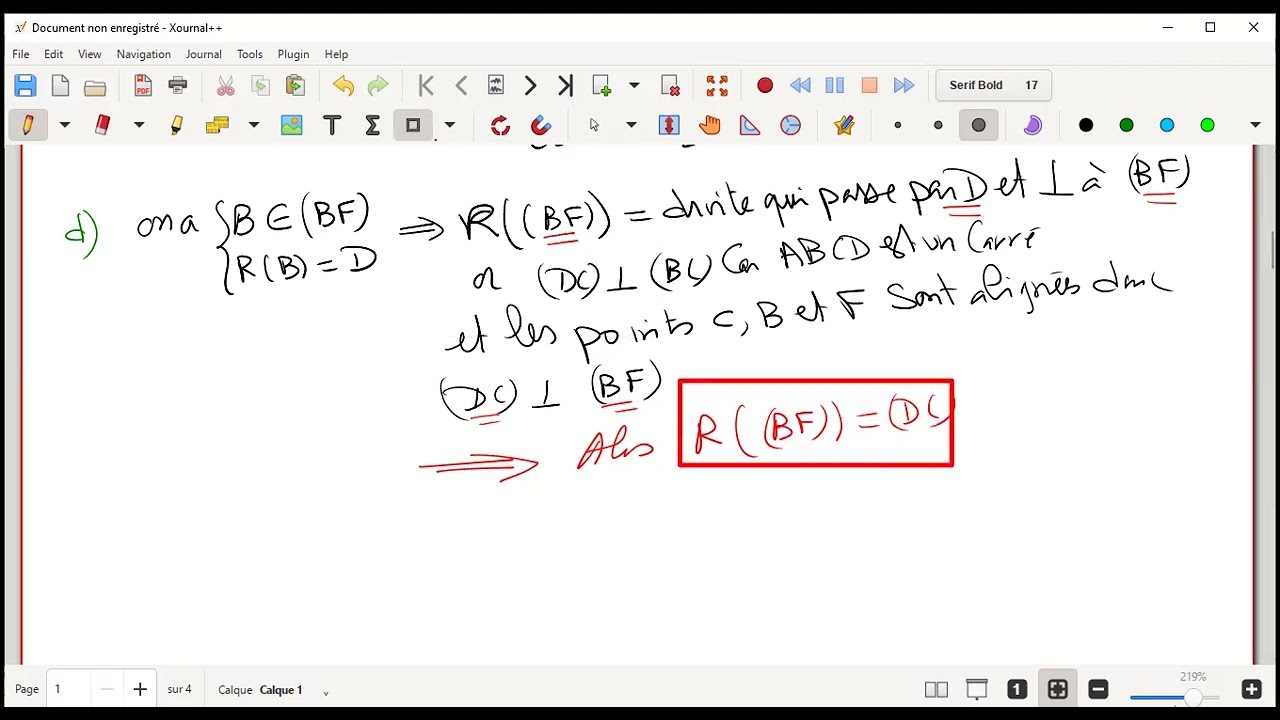 Document non enregistré - Xournal++
File Edit View Navigation Journal Tools Plugin Help
Serif Bold 17
d) on a { B ∈ (BF) ⟹ R((BF)) = droite qui passe par D et ⊥ à (BF)
R(B) = D
or (DC) ⊥ (BC) Car ABCD est un Carré
et les points C, B et F sont alignés donc
(DC) ⊥ (BF)
⟹ Alors R((BF)) = (DC)
Page 1 sur 4 Calque Calque 1
219%